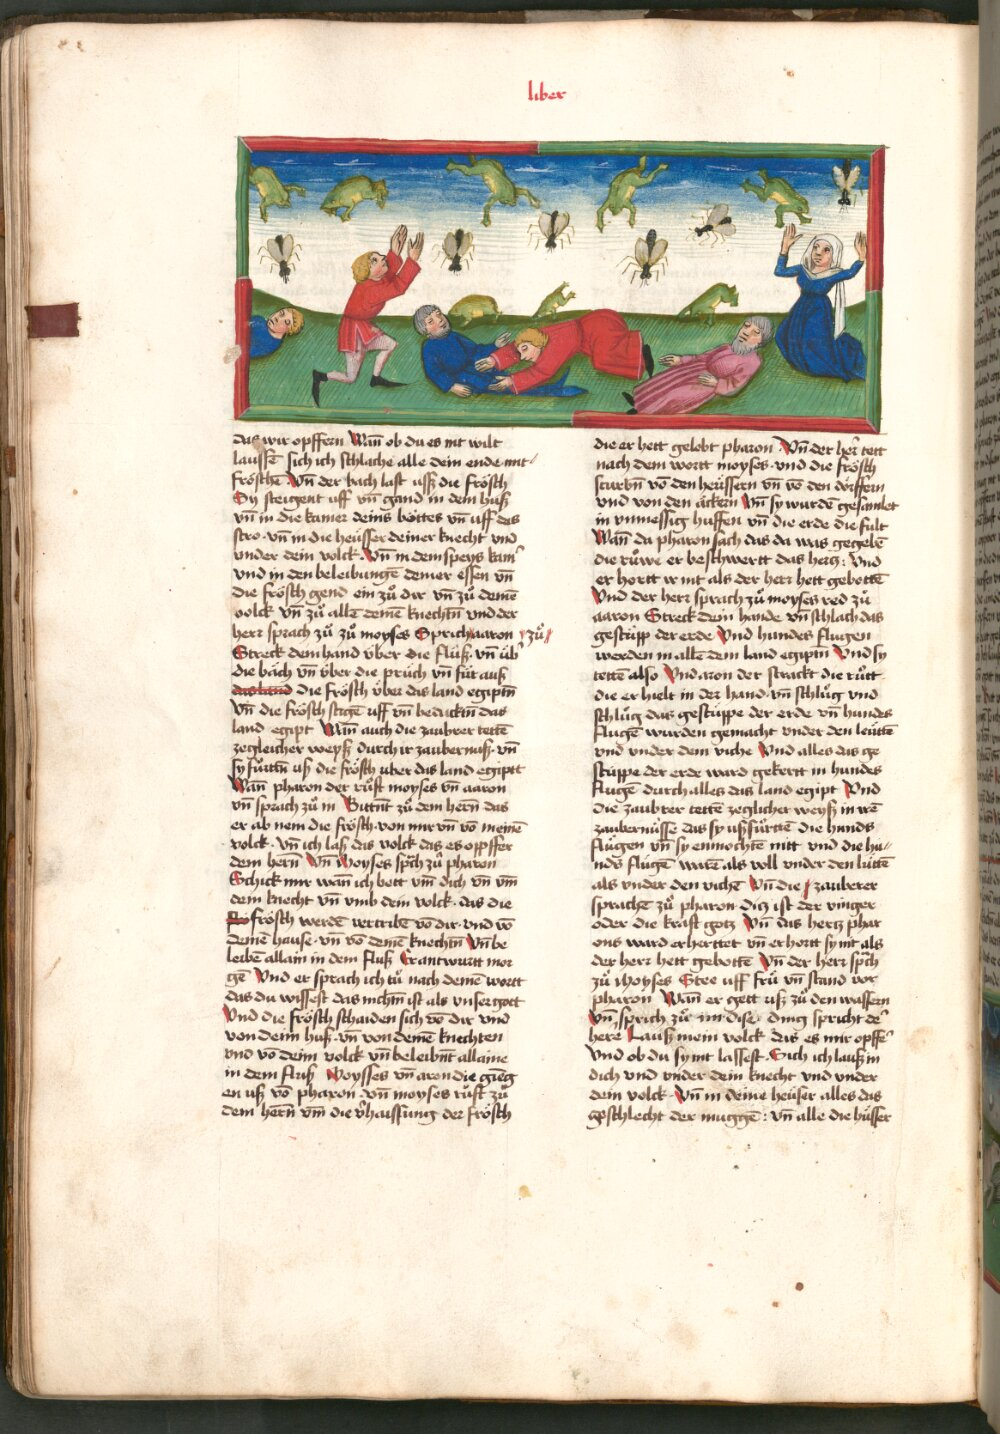 liber
das wir opffern Wañ ob du es nit wilt
laussē sich ich schlache alle dein ende mit
fröschē Vn̄ der bach last uss die frösch
Sy steigent uff vn̄ gand in dem huss
vn̄ in die kamer deins bettes vn̄ uff das
stro vn̄ in die heüsser deiner knecht vnd
vnder dein volck Vn̄ in dem speys kam̄
vnd in den beleibungē deiner essen vn̄
die frösch gend ein zů dir vn̄ zů deinē
volck vn̄ zů allē deinē knechtn̄ vnd der
herr sprach zů zů moyses Sprich aaron zů
Streck dem hand über die flüss vn̄ üb̄
die bäch vn̄ über die prüch vn̄ für auss
das land die frösch über das land egiptn̄
vn̄ die frösch stigē uff vn̄ bedacktn̄ das
land egipt Wañ auch die zaubrer tettē
zegleicher weyss durch ir zaubernuss vn̄
sy fürttn̄ uss die frösch uber das land egiptt
Wañ pharon der růft moyses vn̄ aaron
vn̄ sprach zů in Bittnt zů dem hern̄ das
er ab nem die frösch von mir vn̄ vō meinē
volck vn̄ ich lass das volck das es opffer
dem hern̄ Vn̄ Moyses sp̄ch zů pharon
Schick mir wañ ich bett vm̄ dich vn̄ vm̄
dem knecht vn̄ vmb dem volck das die
frösch werdē vertribē vō dir vnd vō
deinē hause vn̄ vō deinē knechtn̄ Vn̄ be
leibē allain in dem fluss Er antwurtt mor
gē Vnd er sprach ich tů nach deinē wortt
das du wissest das nichtn̄ ist als vnser gott
Vnd die frösch schaiden sich vō dir vnd
von deim huss vn̄ von deinē knechten
vnd vō deim volck vn̄ beleibnt allaine
in dem fluss Moysses vn̄ aron die gieng
en uss vō pharon vn̄ moyses růft zů
dem hern̄ vm̄ die v̄haissung der frösch
die er hett gelobt pharon Vn̄ der her̄ tett
nach dem wortt moyses vnd die frösch
sturbn̄ vō den heüssern vn̄ vō den dörffern
vnd von den äckern Vn̄ sy wurdē gesamlet
in vnmessig huffen vn̄ die erde die fult
Wañ da pharon sach das da was gegebē
die růwe er beschwertt das hertz Vnd
er hortt ir nit als der herr hett gebottē
Vnd der herr sprach zů moyses red zů
aaron Streck dem hande vn̄ schlach das
gestüpp der erde Vnd hundes flugen
werden in allē dem land egiptn̄ Vnd sy
tettē also Vnd aron der strackt die růtt
die er hielt in der hand vn̄ schlůg vnd
schlůg das gestüppe der erde vn̄ hundes
flugē wurden gemacht vnder den leüttē
vnd vnder dem viche Vnd alles das ge
stüppe der erde ward gekertt in hundes
flugē durch alles das land egipt Vnd
die zaubrer tettē zeglicher weyss in irē
zaubernüsse das sy ussfürttē die hunds
flügen vn̄ sy enmochtē nitt vnd die hu
nds flügē warē als voll vnder den lüttē
als vnder den vichē Vn̄ die zauberer
sprachē zů pharon ditz ist der vinger
oder die krafft gotz Vn̄ das hertz phar
ons ward erherttet vn̄ erhortt sy nit als
der herr hett gebottē Vn̄ der herr sp̄ch
zů Moyses Stee uff frů vn̄ stand vor
pharon Wañ er gett uss zů den wassern
vn̄ sprich zů im dise ding spricht de͛
here Lauss mein volck das es mir opffē
Vnd ob du sy nit lassest Sich ich lauss in
dich vnd vnder dein knecht vnd vnder
dem volck Vn̄ in deine heüser alles das
geschlecht der muggē vn̄ alle die hüsser